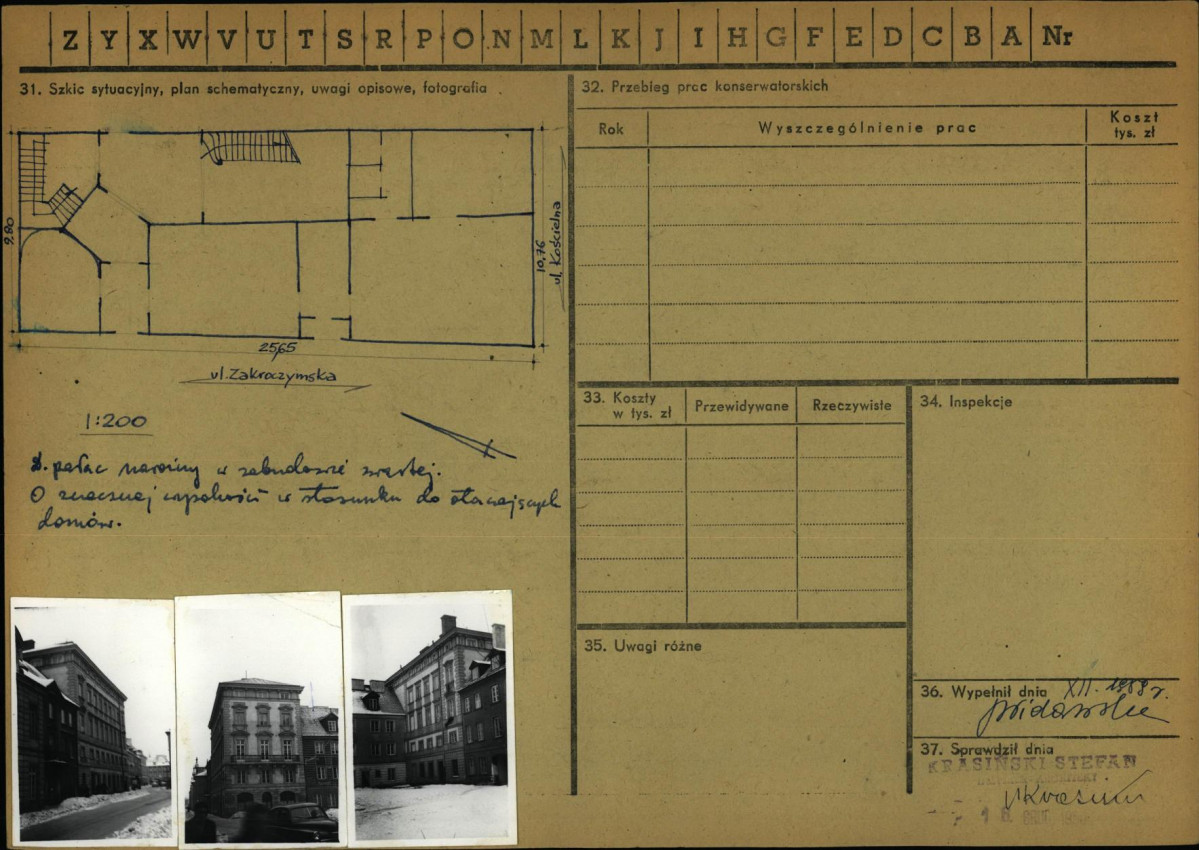 Z Y X W V U T S R P O N M L K J I H G F E D C B A Nr
31. Szkic sytuacyjny, plan schematyczny, uwagi opisowe, fotografia
9.80
10,76
ul. Kościelna
25,65
ul. Zakroczymska
1:200
pałac narożny w zabudowie zwartej.
O znacznej wysokości w stosunku do otaczających
domów.
32. Przebieg prac konserwatorskich
Rok
Wyszczególnienie prac
Koszt
tys. zł
33. Koszty
w tys. zł
Przewidywane
Rzeczywiste
34. Inspekcje
35. Uwagi różne
36. Wypełnił dnia XII.
37. Sprawdził dnia
KRASIŃSKI STEFAN